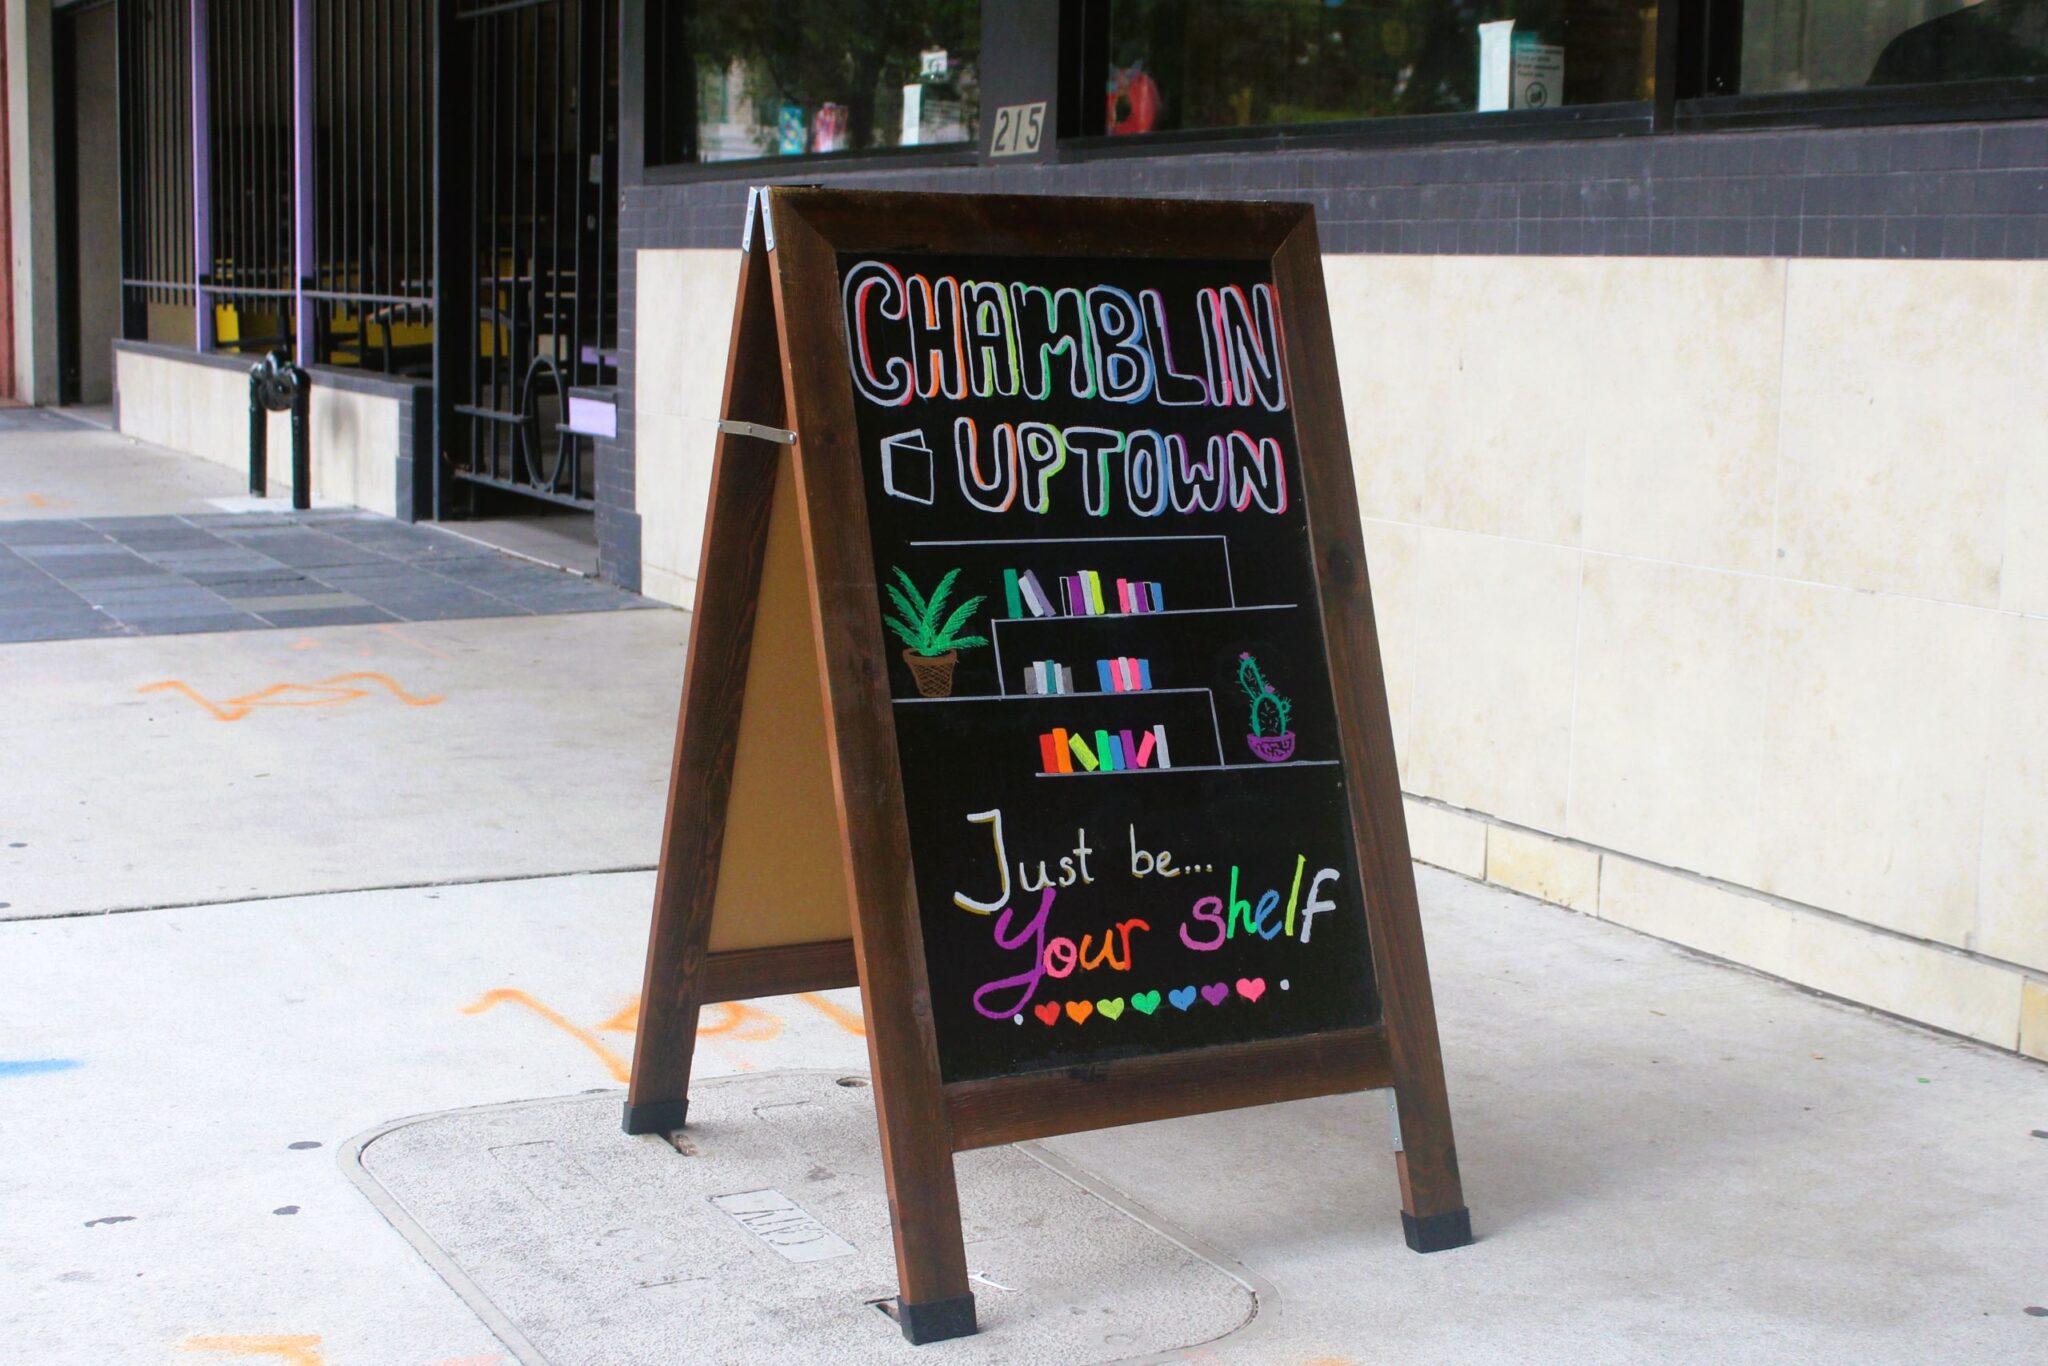 215
CHAMBLIN
UPTOWN
Just be...
your shelf
CATV